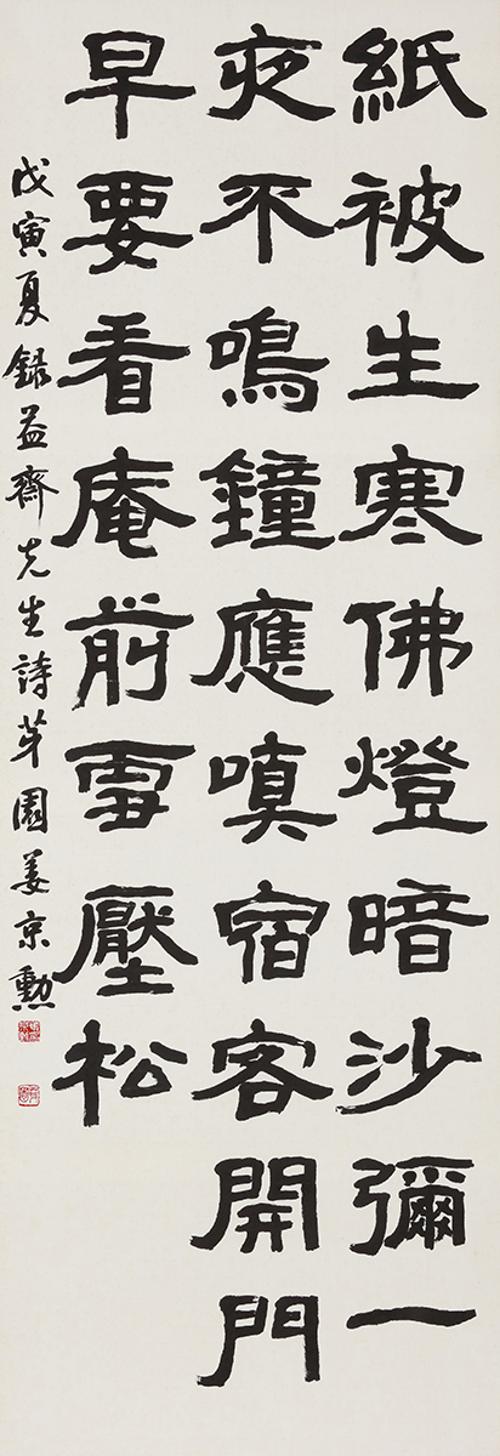 紙被生寒佛燈暗沙彌一
夜不鳴鐘應嗔宿客開門
早要看庵前雪壓松
戊寅夏錄益齋先生詩芽園姜京勳